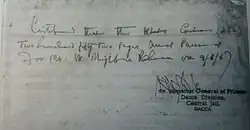 Certified that this Khata Contains (252)
Two hundred fifty two pages, and Passed
For Mr. Sk. Mujibur Rahman on 9/6/67
Dy. Inspector General of Prisons
Dacca Division,
Central Jail
DACCA